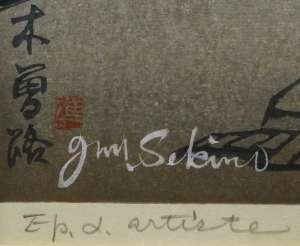 木曽路
Jun. Sekino
Ep. d. artiste